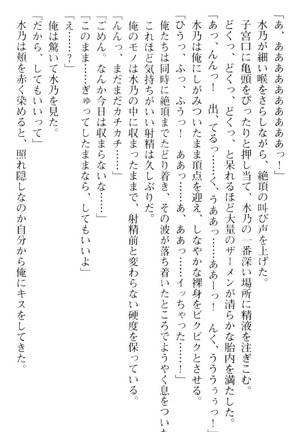 「あ、あああああああああっ!」
　水乃が細い喉をさらしながら、絶頂の叫び声を上げた。
　子宮口に亀頭をぴったりと押し当て、水乃の一番深い場所に精液を注ぎこむ。
　どくっ、どくっ、どくっ、と呆れるほど大量のザーメンが清らかな胎内を満たした。
「あっ、んんっ! 出、てるっ……くっ、うああっ……あっ、うううぅぅっ!」
　水乃は俺にしがみついたまま頂点を迎え、しなやかな裸身をビクビクとさせる。
「ひうっ、ふっ、ふうっ! ああっ……あ、ああっ……イッちゃった……!」
　俺たちは同時に絶頂までたどり着き、その波が落ち着いたところでようやく息をついた
　これほど気持ちがいい射精は久しぶりだ。
　俺のモノは水乃の中に収まったままで、射精前と変わらない硬度を保っている。
「んんっ、まだまだカチカチ……」
「ごめん。なんか今日は収まらないな……」
「このまま……ぎゅってしたままなら、してもいいよ」
「え……?」
　俺は驚いて水乃を見た。
「だから、してもいいって」
　水乃は頬を赤く染めると、照れ隠しなのか自分から俺にキスをしてきた。